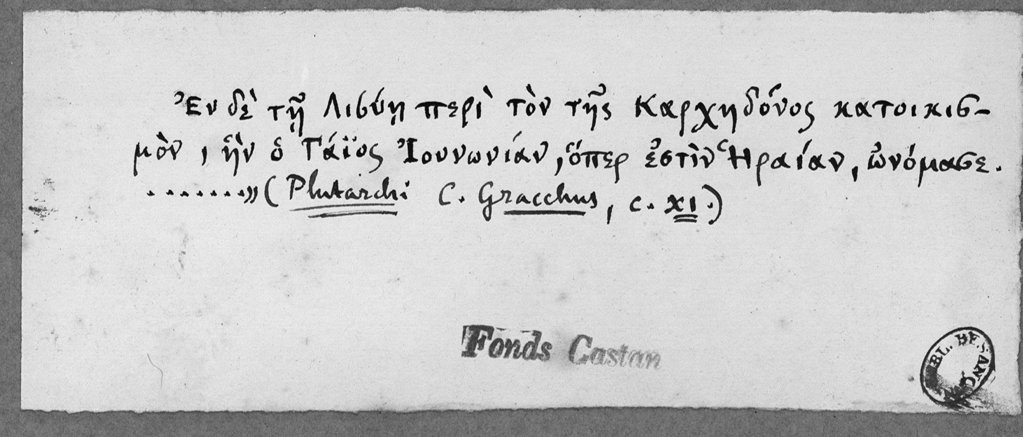 Ἐν δὲ τῇ Λιβύῃ περὶ τὸν τῆς Καρχηδόνος κατοικισ-
μὸν, ἣν ὁ Γάϊος Ἰουνωνίαν, ὅπερ ἐστὶν Ἡραίαν, ὠνόμασε.
........» (Plutarchi C. Gracchus, c. XI.)
Fonds Castan
BL. BESANÇON